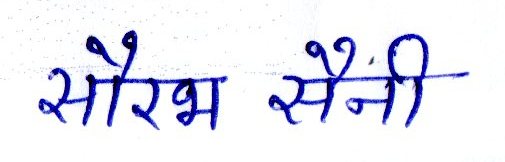 सौरभ सैनी